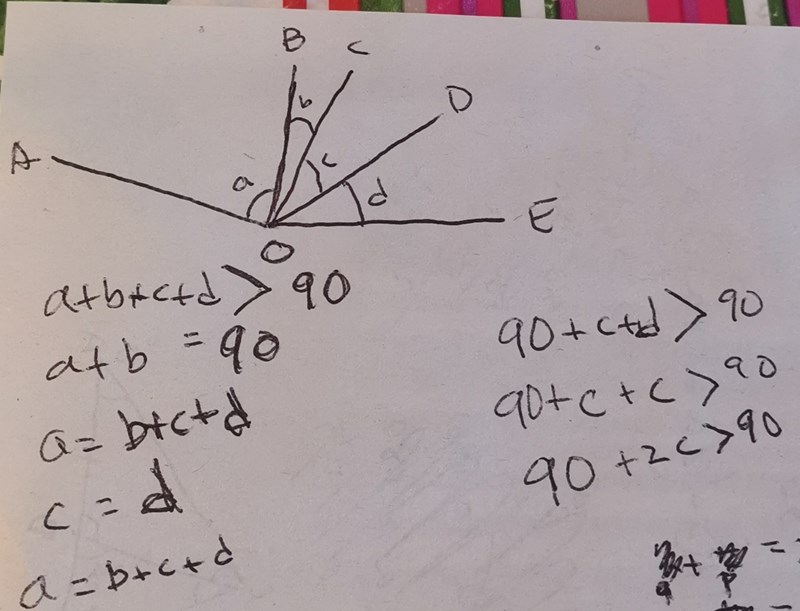 B C
D
A
b
a c
d
E
O
a+b+c+d > 90
a+b = 90
a = b+c+d
c = d
a = b+c+d
90+c+d > 90
90+c+c > 90
90+2c > 90